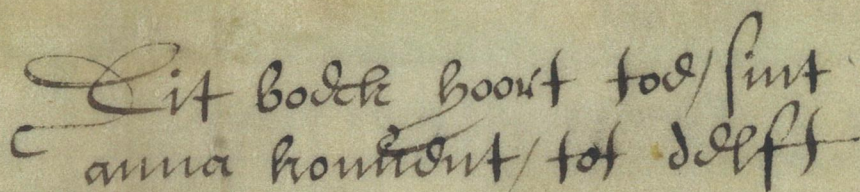 Dit boeck hoort toe / sint
anna konuent / tot delft